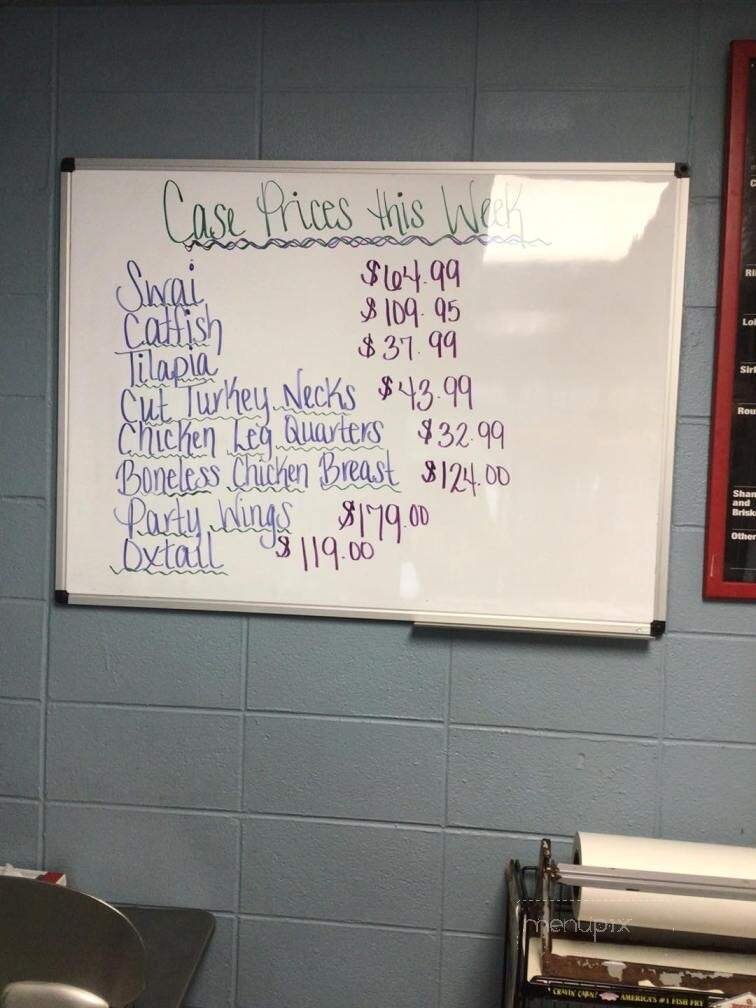 Case Prices this Week
Swai $64.99
Catfish $109.95
Tilapia $37.99
Cut Turkey Necks $43.99
Chicken Leg Quarters $32.99
Boneless Chicken Breast $124.00
Party Wings $179.00
Oxtail $119.00
Lo
Sir
Rou
Shan
and
Brisk
Other
menupix
CRAVIN' CAJUN! AMERICA'S #1 FISH FRY